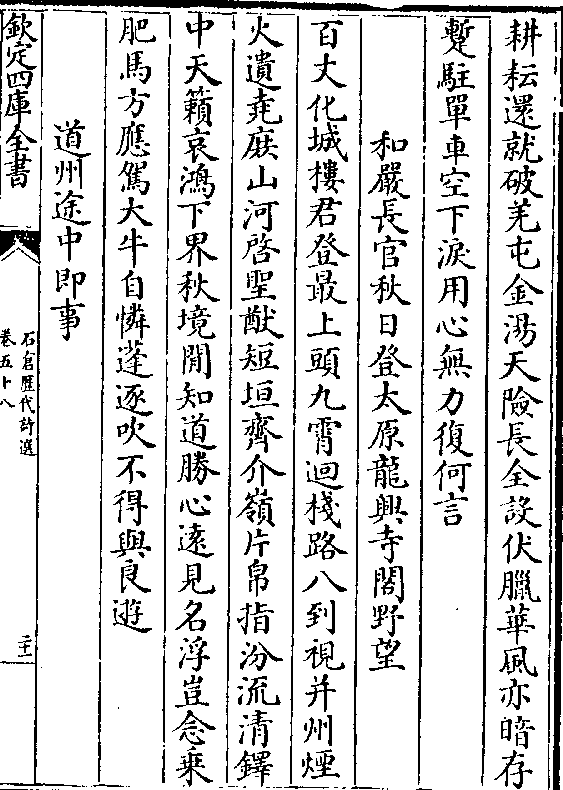 耕耘還就破羌屯金湯天險長全設伏臘華風亦暗存
蹔駐單車空下淚用心無力復何言
和嚴長官秋日登太原龍興寺閣野望
百丈化城樓君登最上頭九霄迴棧路八到視并州煙
火遺堯庶山河啓聖猷短垣齊介嶺片帛指汾流清鐸
中天籟哀鴻下界秋境閒知道勝心遠見名浮豈念乘
肥馬方應駕大牛自憐蓬逐吹不得與良遊
道州途中即事
欽定四庫全書
石倉歷代詩選
卷五十八
二十